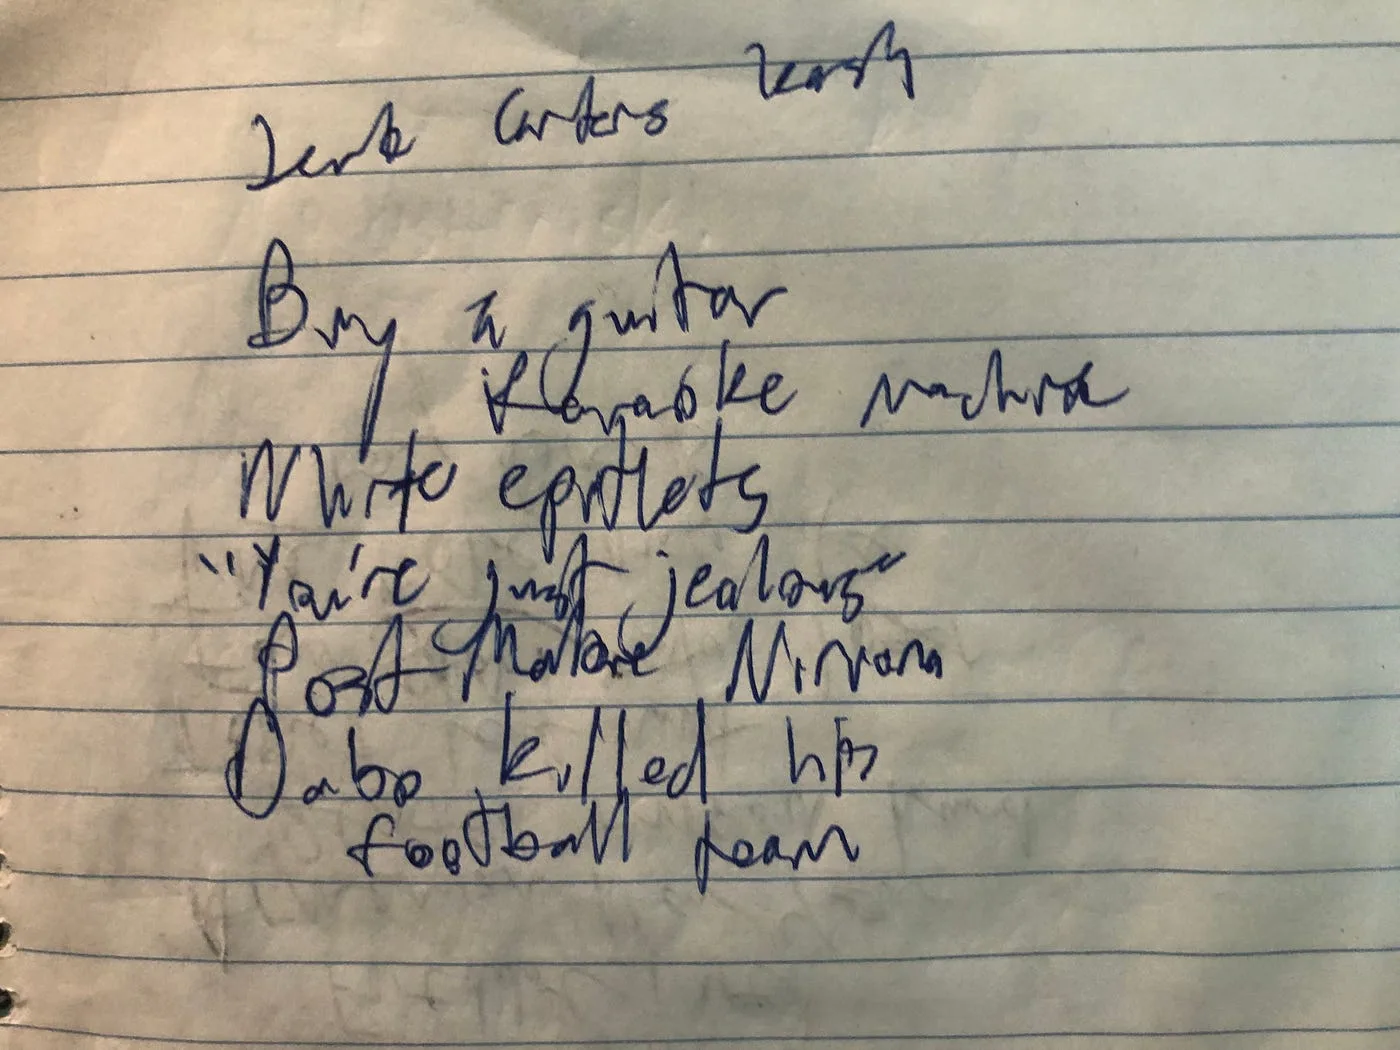 Carters
Buy a guitar
Karaoke machine
White epithets
"You're just jealous"
Post Malone Nirvana
Dabo killed his
football team